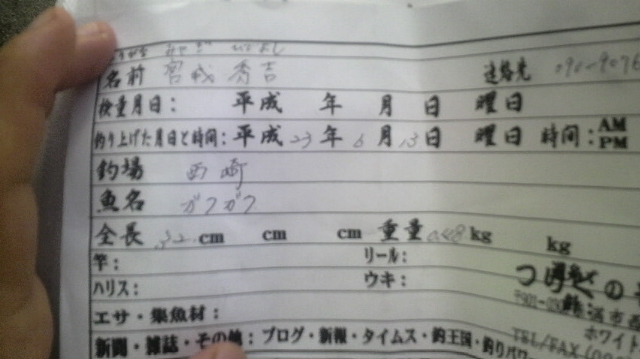 名村 宮城 秀吉 連絡先 090-9076
検量月日: 平成 年 月 日 曜日
釣り上げた月日と時間: 平成 23 年 6 月 13 日 曜日 時間: AM PM
釣場 西崎
魚名 ガクガク
全長 32 cm cm cm 重量 0.48 kg kg
竿: リール:
ハリス: ウキ:
エサ・集魚材:
新聞・雑誌・その他: ブログ・新報・タイムス・釣王国・釣りパワ
ホワイト
TEL/FAX